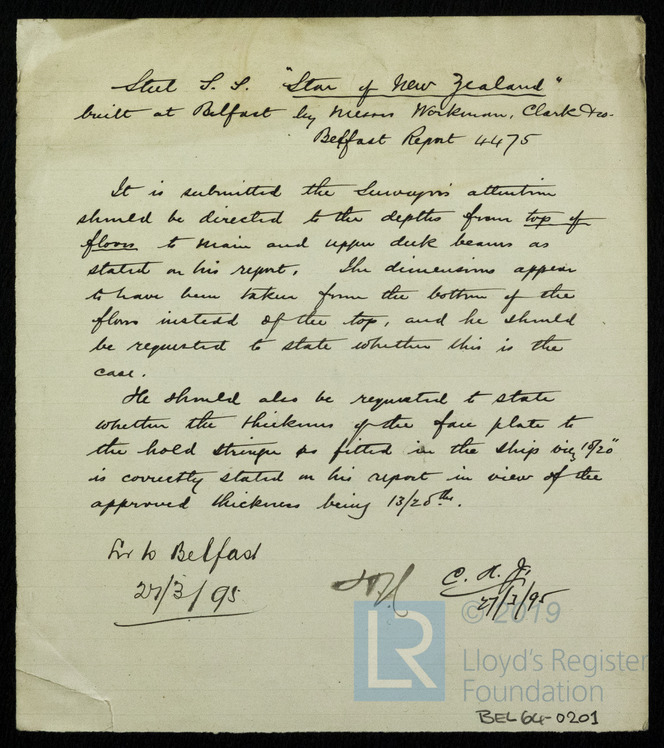 Steel S. S. "Star of New Zealand"
built at Belfast by Messrs Workman, Clark & Co.
Belfast Report 4475
It is submitted the Surveyor's attention
should be directed to the depths from top of
floors to main and upper deck beams as
stated on his report. The dimensions appear
to have been taken from the bottom of the
floors instead of the top, and he should
be requested to state whether this is the
case.
He should also be requested to state
whether the thickness of the face plate to
the hold stringer as fitted in the ship viz
is correctly stated on his report in view of the
approved thickness being 13/20ths.
Lr to Belfast
27/3/95
27/3/95
© 2019
LR
Lloyd's Register
Foundation
BEL64-0201